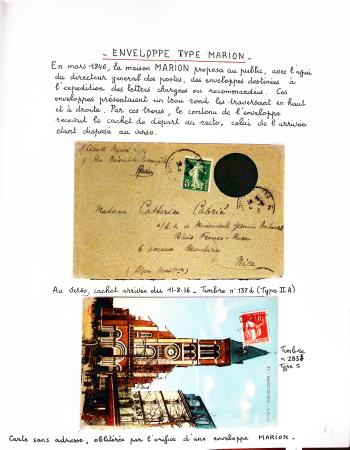 - ENVELOPPE TYPE MARION -
En mars 1846, la maison MARION proposa au public, avec l'appui
du directeur general des postes, des enveloppes destinées à
l'expedition des lettres chargées ou recommandées. Ces
enveloppes présentaient un trou rond les traversant en haut
et à droite. Par ces trous, le contenu de l'enveloppe
recevait le cachet de départ au recto, celui de l'arrivée
étant disposé au verso.
Madame Catherine
Palais France-Russe
6 avenue
Nice
(Alpes
Au verso, cachet arrivée du 11-8-16 - Timbre n° 137d (Type II A)
Timbre
n 283
Type
Carte sans adresse, oblitérée par l'orifice d'une enveloppe MARION -